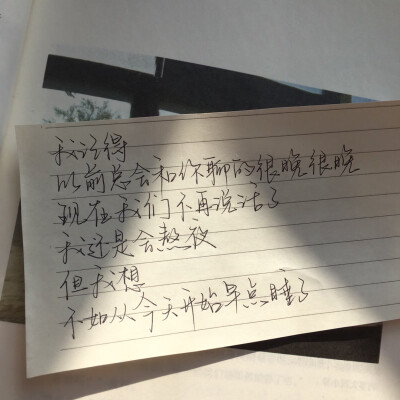 我记得
以前总会和你聊的很晚很晚
现在我们不再说话了
我还是会熬夜
但我想
不如从今天开始早点睡了